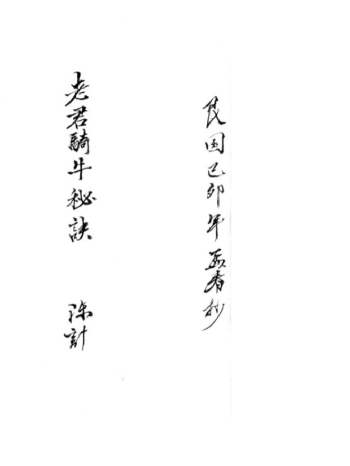 民国己卯年孟春抄
老君騎牛秘訣 陈計